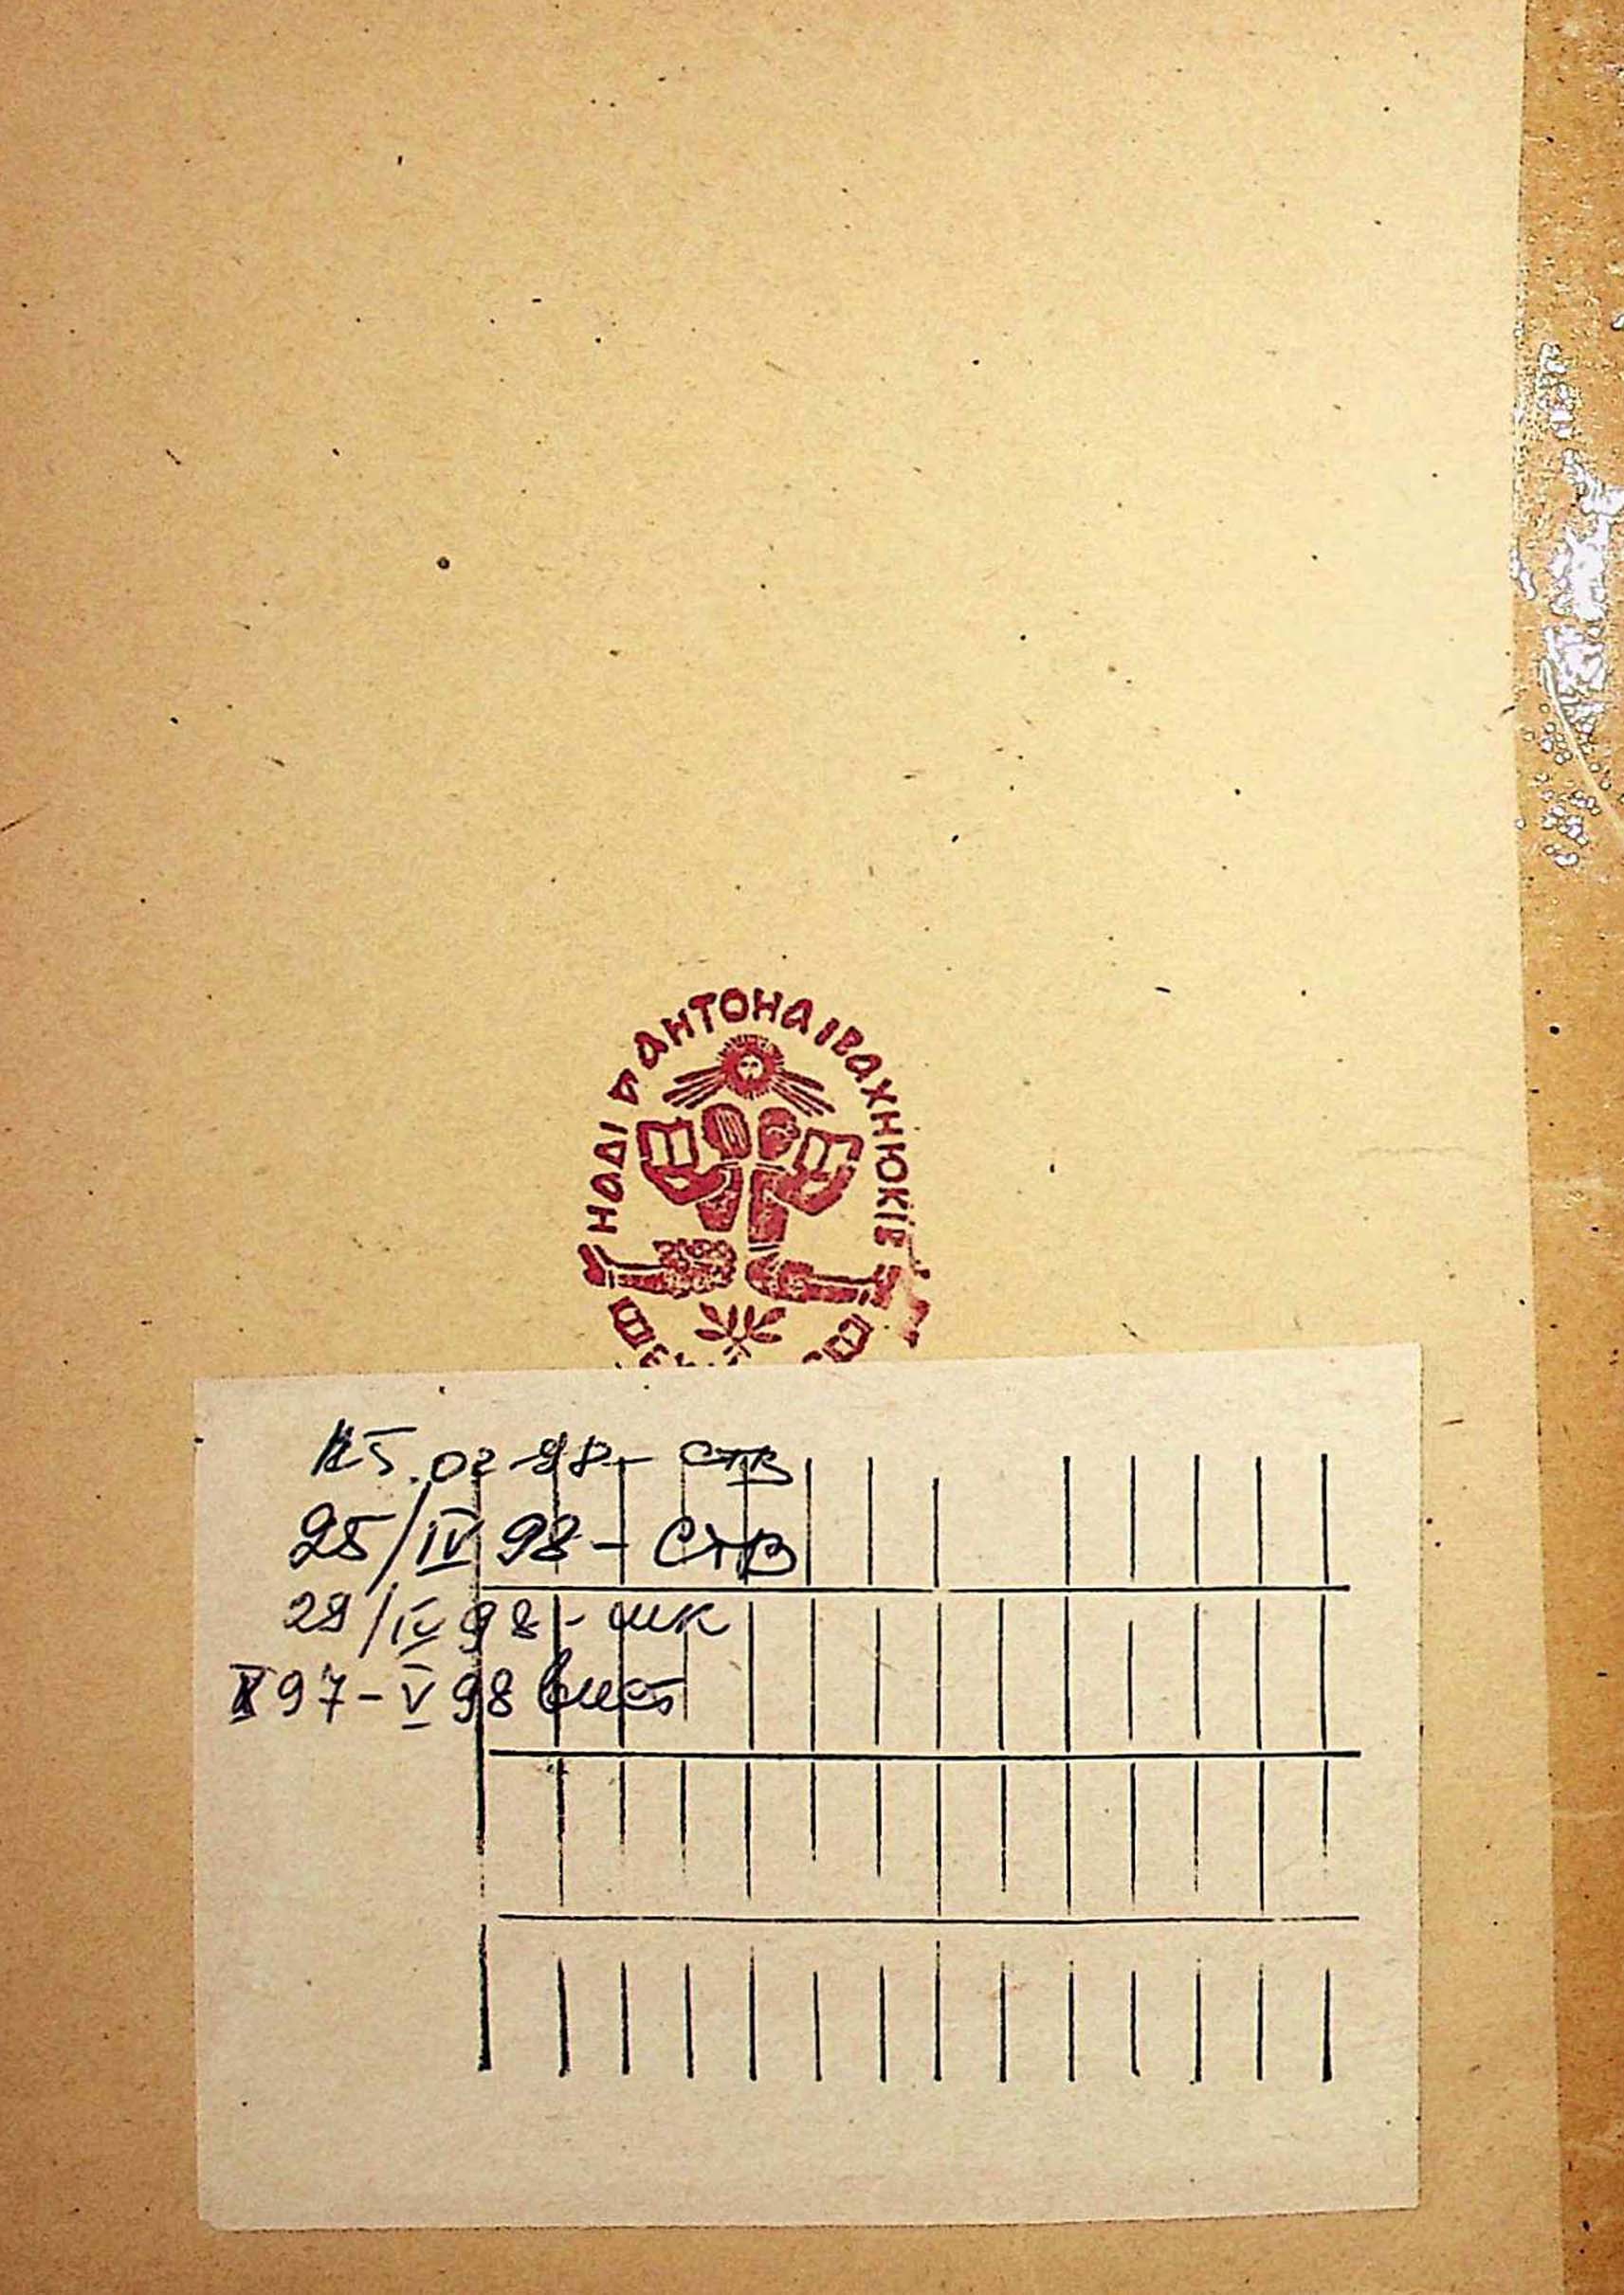 НАДІ Б АНТОНА ІВАХНЮКІВ
25.02-98- СТВ
25/IV 98 - СТВ
29/IV 98 - шк
X 97-V 98 вист